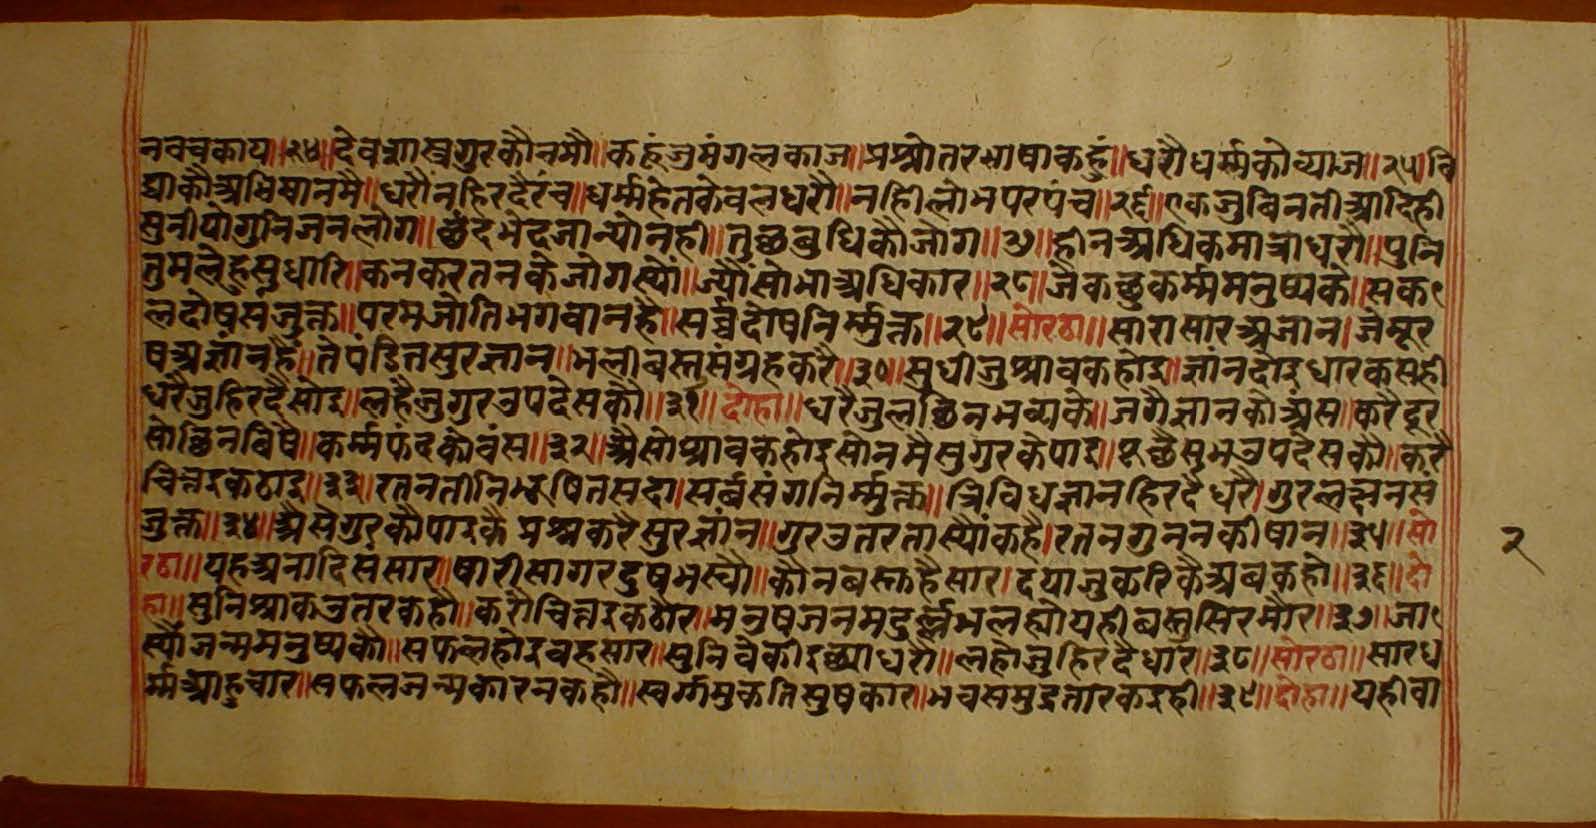 नवचकाय॥२४॥देवशास्त्रगुरकौनमौ॥कहूंजुमंगलकाज॥प्रश्नोतरभाषाकहुं॥धरौधर्म्मकोव्याज॥२५॥वि
द्याकौअभिषानमै॥धरौंनहिरदैरंच॥धर्म्महेतकेवलधरौ॥नहीिलोभपरपंच॥२६॥एकजुबिनतीआदिही
सुनीयोगुनिजनलोग॥छंदभेदजान्योनही॥तुछबुधिकौजोग॥२७॥हीनअधिकमात्राधरौ॥पुनि
तुमलेहुसुधारि॥कनकरतनकेजोगस्यो॥ज्यौसोभाअधिकार॥२८॥जैकछुकर्म्ममनुष्यके॥सक
लदोषसंजुक्त॥परमजोतिभगवानहै॥सर्व्वदोषनिर्म्मुक्त॥२९॥सोरठा॥सारासारअजान।जेमूर
षअज्ञानहै॥तेपंडितसुरज्ञान॥भलीबस्तसंग्रहकरै॥३०॥सुधीजुश्रावकहोइ॥ज्ञांनदोइधारकसही
धरैजुहिरदैसोइ॥लहैजुगुरउपदेसकौ॥३१॥दोहा॥धरैजुलछिनभव्यके॥जगैज्ञानकौअंस॥करैदूर
सोछिनबिषै॥कर्म्मफंदकोवंस॥३२॥अैसोश्रावकहोइसोनमैसुगुरकेपाइ॥पूछैसुभउपदेसकौ॥करै
चित्तइकठाइ॥३३॥रतनतीनिभूषितसदा।सर्बसंगनिर्म्मुक्त॥त्रिविधज्ञानहिरदैधरै।गुरलछनसं
जुक्त॥३४॥अैसेगुरकौपाइकै प्रश्नकरैसुरज्ञांन॥गुरउतरतास्यौंकहै।रतनगुननकीषान॥३५॥सो
रठा॥यहअनादिसंसार॥षारीसागरदुषभस्यौ॥कौनबस्तहैसार।दयाजुकरिकैअबकहो॥३६॥दो
हा॥सुनिश्रावकउतरकहौ॥करौचित्तइकठौर॥मनुषजनमदुर्ल्लभलह्यौयहीबस्तुसिरमौर॥३७॥जा
स्यौंजन्ममनुष्यकौ॥सफलहोइवहसार॥सुनिवेकीइछ्याधरौ॥लहौजुहिरदैधारि॥३८॥सोरठा॥सारध
र्म्मआहुचार॥सफलजन्मकारनकहौ॥स्वर्ग्गमुकतिसुषकार॥भवसमुद्रतारकइही॥३९॥दोहा॥यहीवा
२